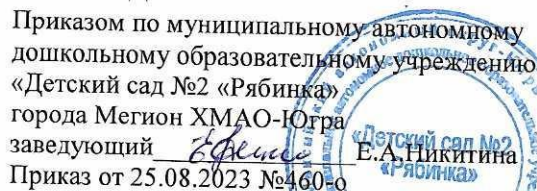 Приказом по муниципальному автономному
дошкольному образовательному учреждению
«Детский сад №2 «Рябинка»
города Мегион ХМАО-Югра
заведующий Е.А.Никитина
Приказ от 25.08.2023 №460-о
«Детский сад №2
«Рябинка»